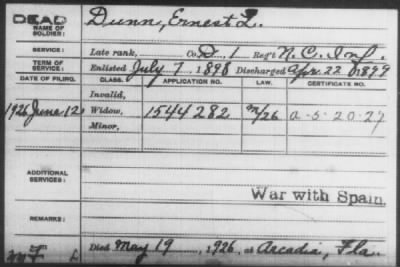 DEAD
NAME OF SOLDIER: Dunn, Ernest L.
SERVICE: Late rank, Co. D, 1 Reg't N.C. Inf.
TERM OF SERVICE: Enlisted July 7, 1898 Discharged Apr. 22, 1899
DATE OF FILING. CLASS. APPLICATION NO. LAW. CERTIFICATE NO.
Invalid,
1926 June 12 Widow, 1544282 a-5-20-27
Minor,
ADDITIONAL SERVICES:
War with Spain.
REMARKS:
Died May 19, 1926, at Arcadia, Fla.